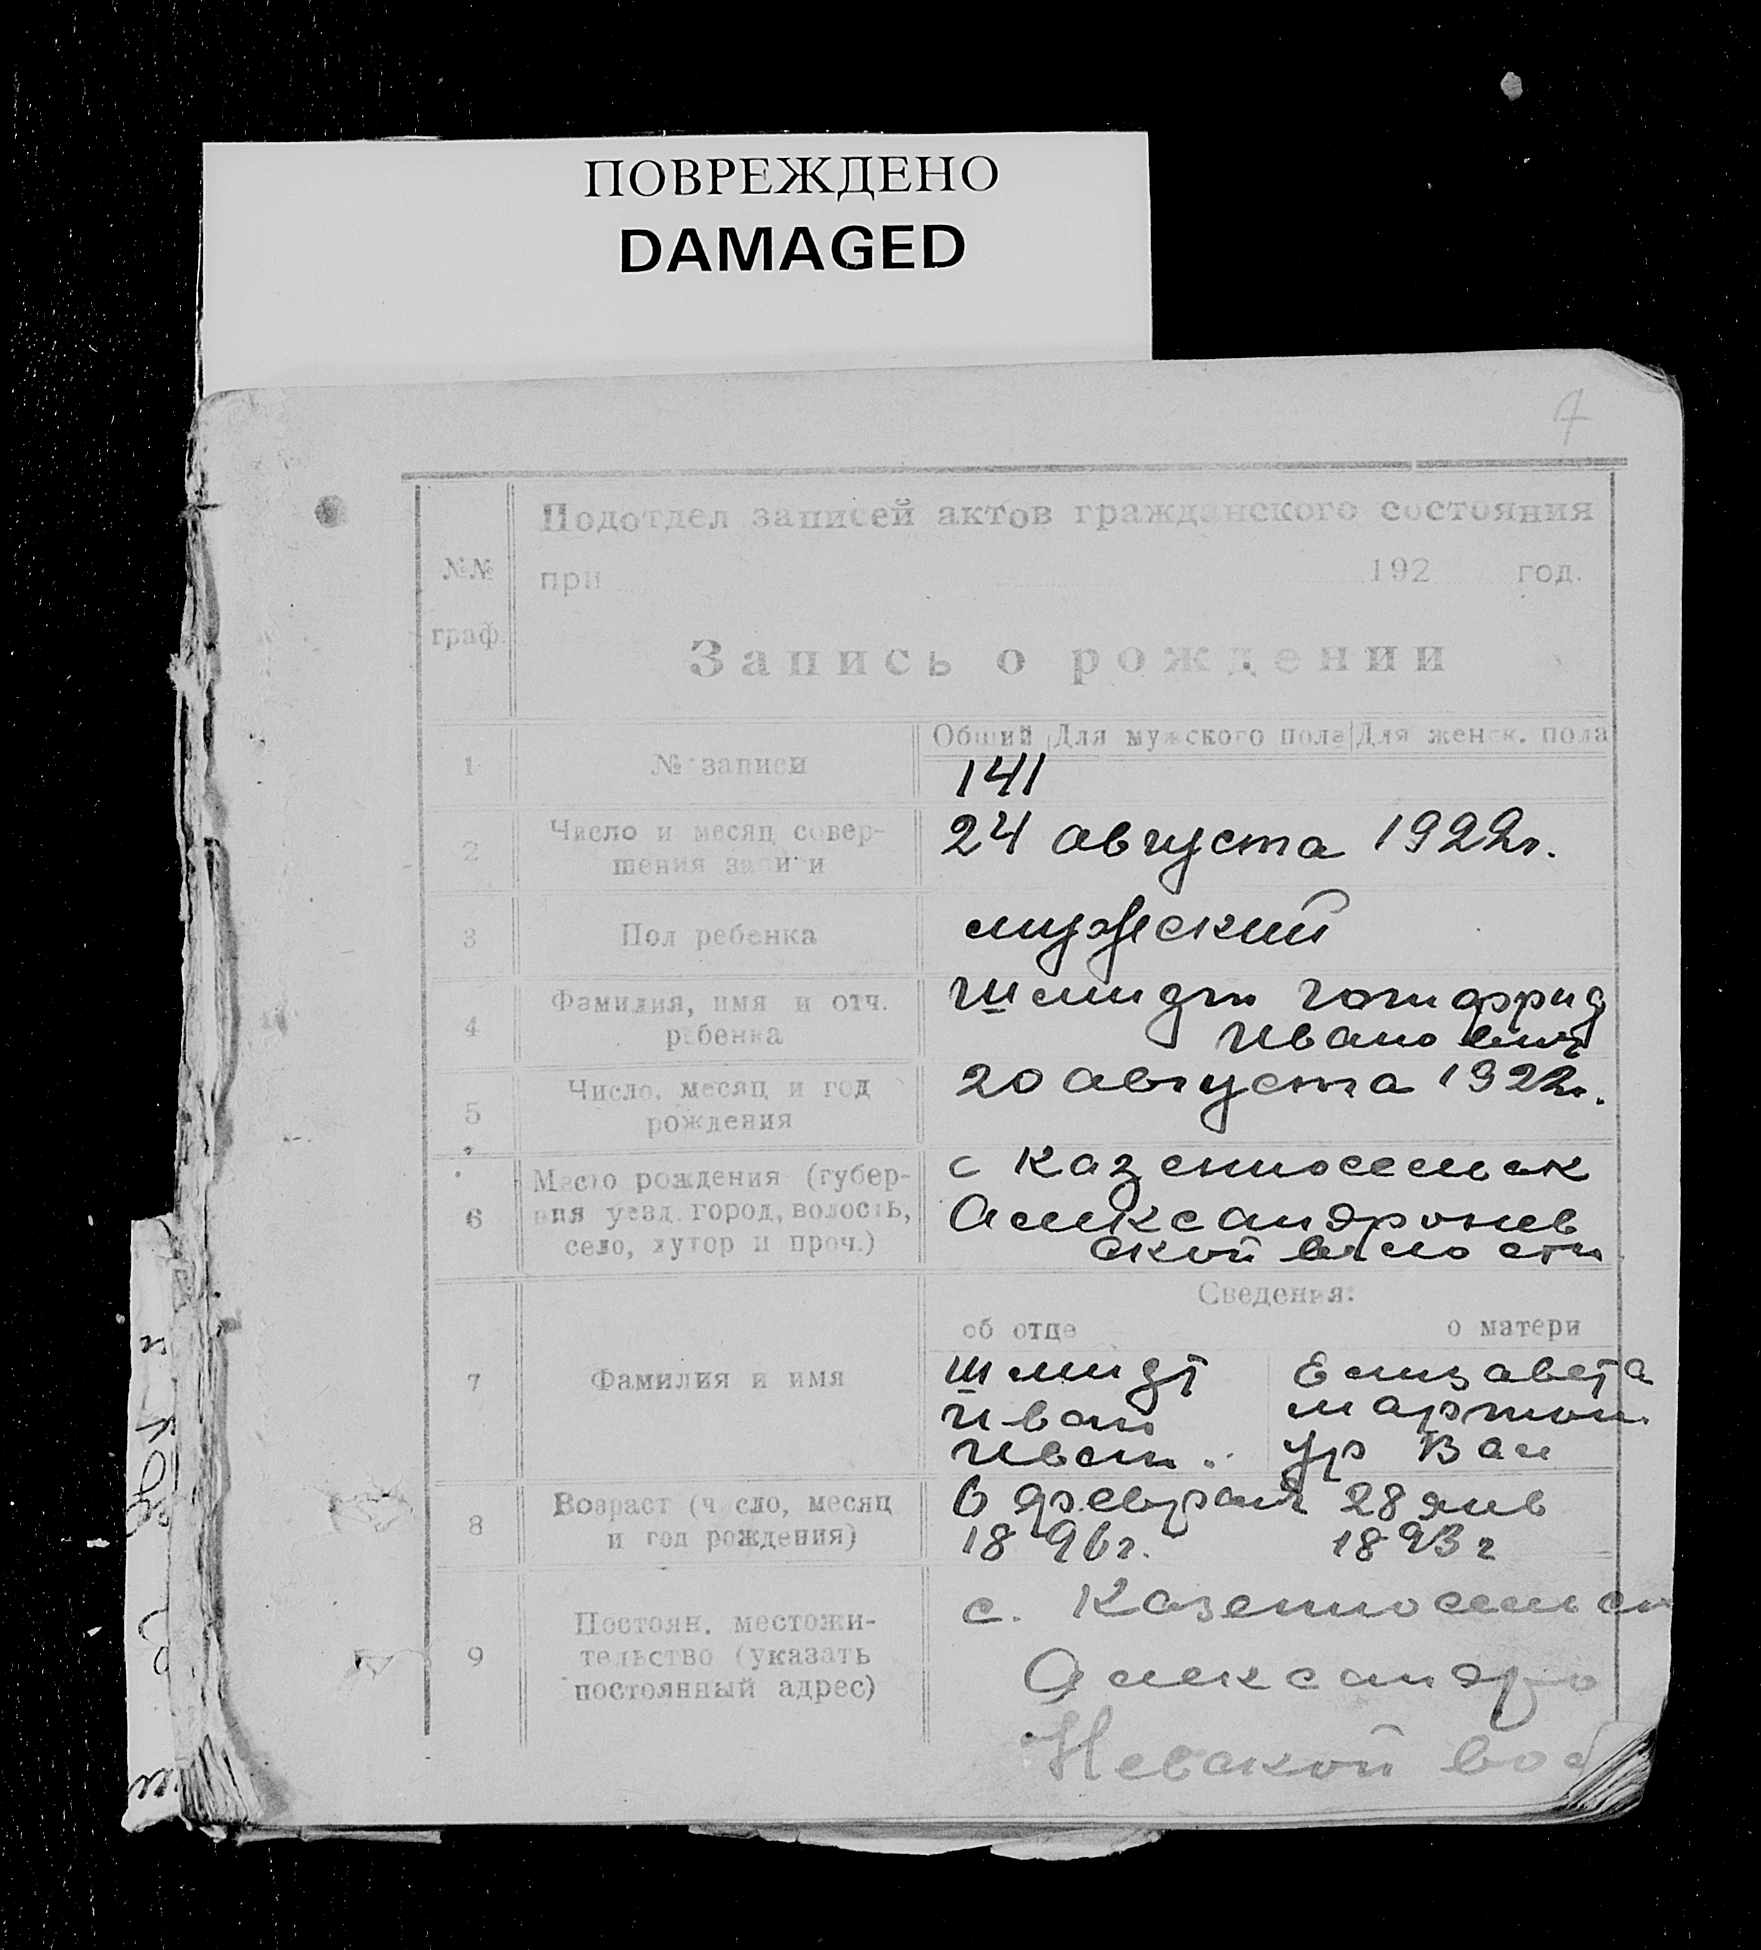 ПОВРЕЖДЕНО
DAMAGED
4
Подотдел записей актов гражданского состояния
№№
при 192 год.
граф.
Запись о рождении
Общий Для мужского пола Для женск. пола
1 № записи 141
2 Число и месяц совер-
шения записи
24 августа 1922г.
3 Пол ребенка мужеский
4 Фамилия, имя и отч.
ребенка
Шмидт Готифрид
Иванович
5 Число, месяц и год
рождения
20 августа 1922г.
6 Место рождения (губер-
ния уезд. город, волость,
село, хутор и проч.)
с Казенносельск
Александроневской
ской волости
Сведения:
об отце о матери
7 Фамилия и имя
Шмидт Елизавета
Иван Мартын
Иван. ур Вал
8 Возраст (число, месяц
и год рождения)
6 февраля 28 янв
1896г. 1893г
9 Постоян. местожи-
тельство (указать
постоянный адрес)
с. Казенносельск
Александро
Невской вол